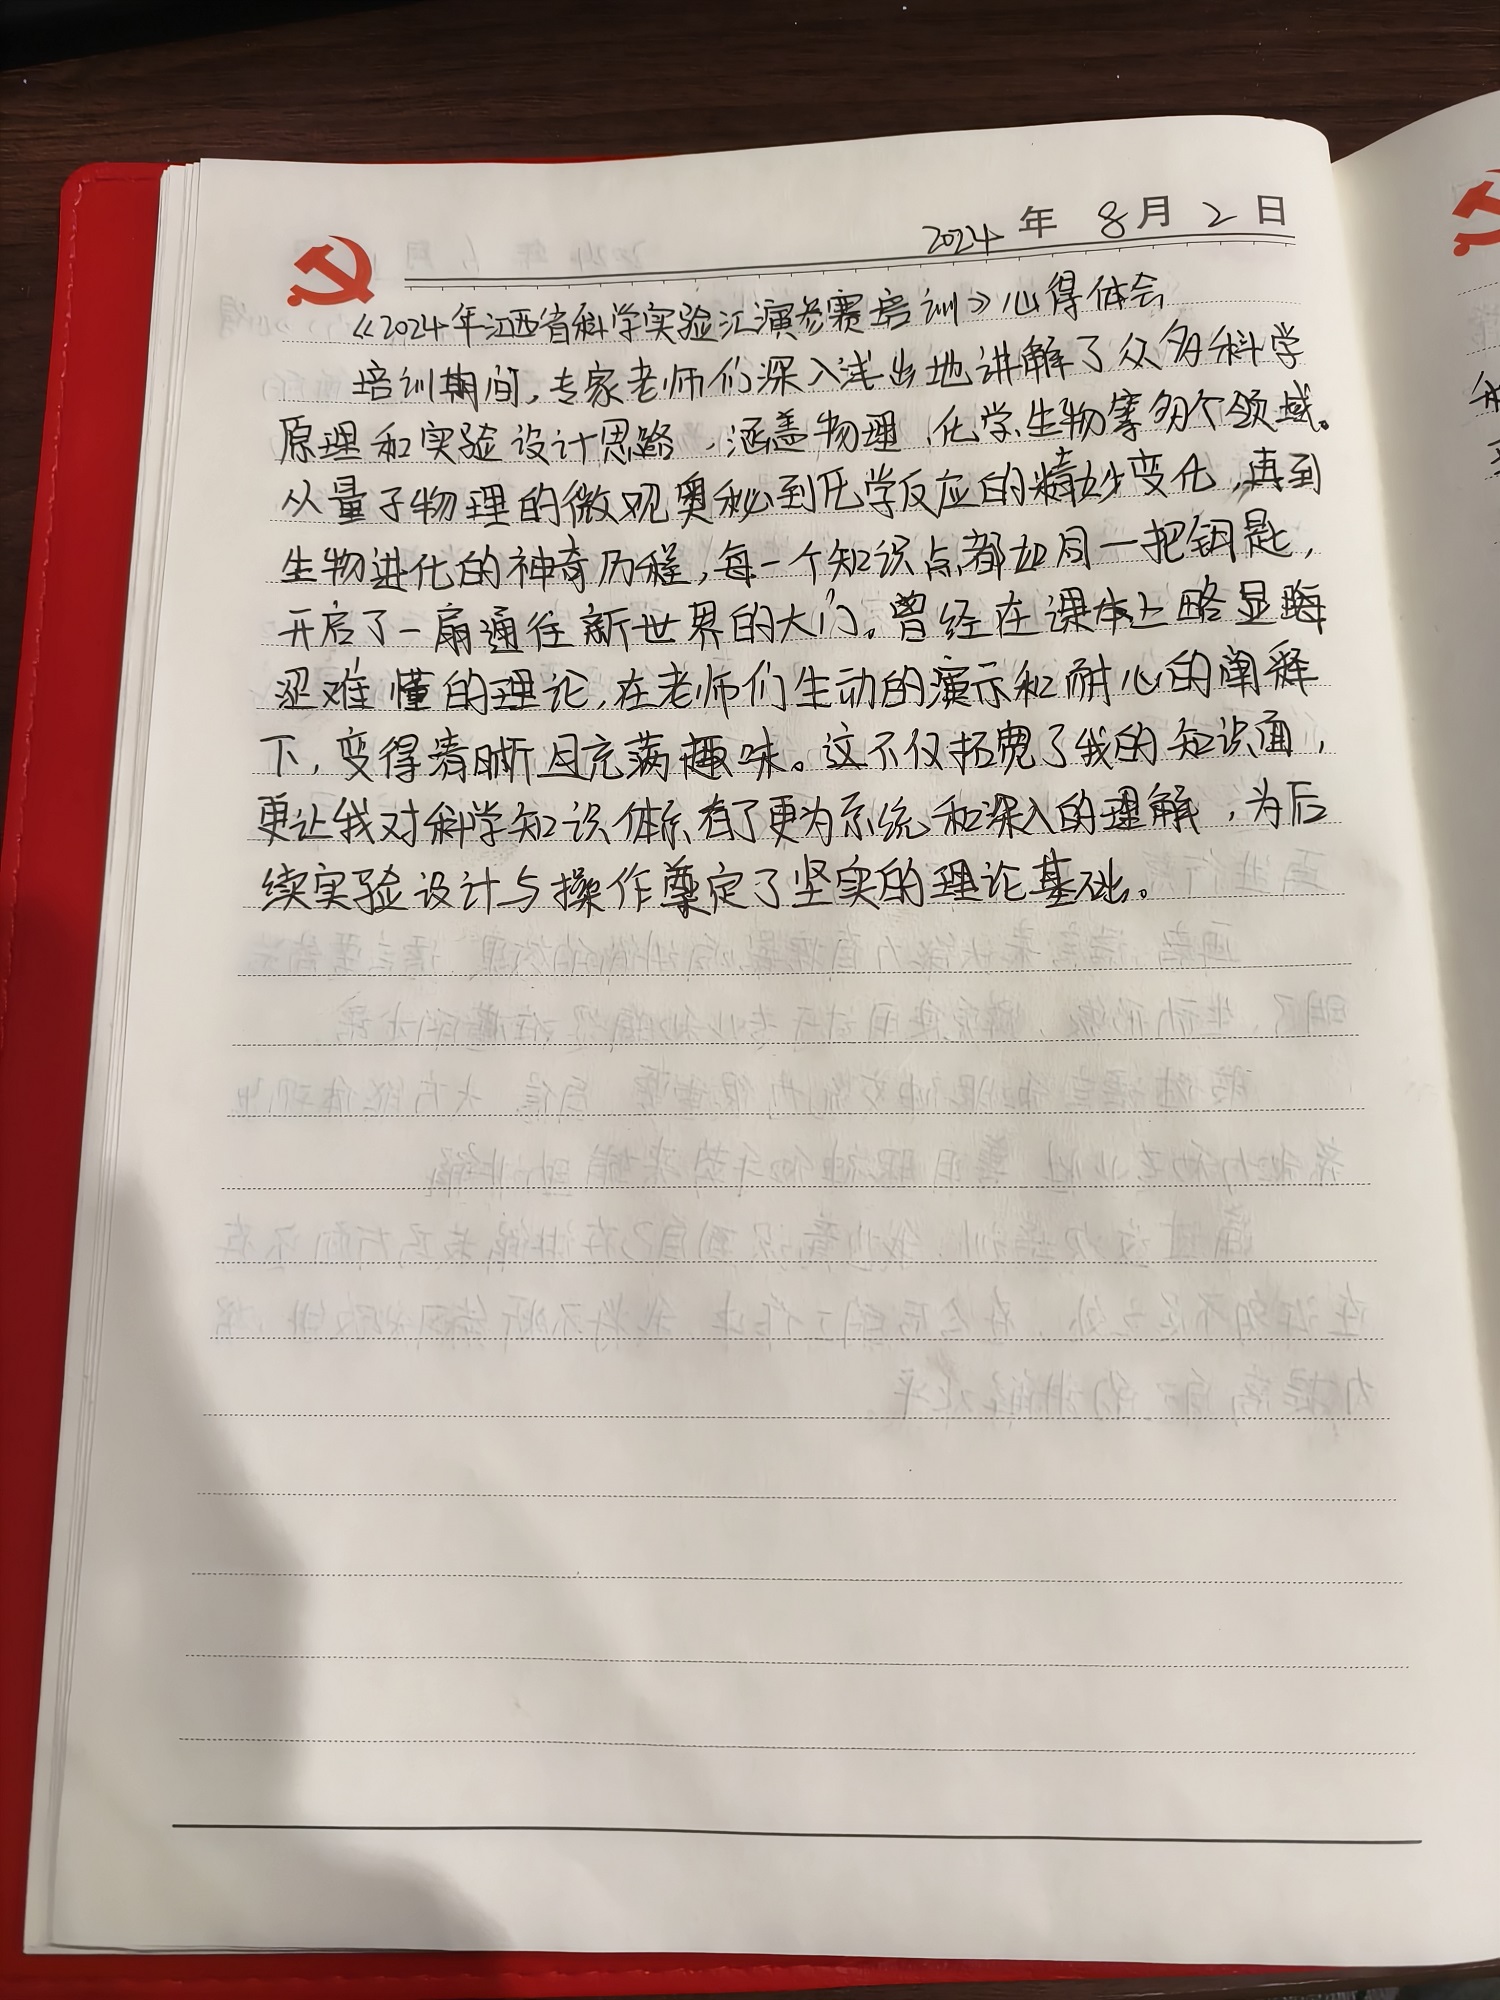 2024 年 8 月 2 日
《2024年江西省科学实验汇演参赛培训》心得体会
培训期间，专家老师们深入浅出地讲解了众多科学
原理和实验设计思路，涵盖物理、化学、生物等多个领域。
从量子物理的微观奥秘到化学反应的精妙变化，再到
生物进化的神奇历程，每一个知识点都如同一把钥匙，
开启了一扇通往新世界的大门。曾经在课本上略显晦
涩难懂的理论，在老师们生动的演示和耐心的阐释
下，变得清晰且充满趣味。这不仅拓宽了我的知识面，
更让我对科学知识体系有了更为系统和深入的理解，为后
续实验设计与操作奠定了坚实的理论基础。